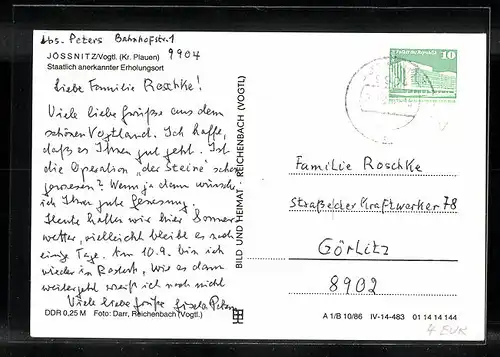 Abs. Peters Bahnhofstr. 1
9904
JÖSSNITZ/Vogtl. (Kr. Plauen)
Staatlich anerkannter Erholungsort
Liebe Familie Roschke!
Viele liebe Grüße aus dem
schönen Vogtland. Ich hoffe,
daß es Ihnen gut geht. Ist
die Operation "der Steine" schon
gewesen? Wenn ja dann wünsche
ich Ihnen gute Genesung.
Heute hatten wir hier Sonnen
wetter, vielleicht bleibt es noch
einige Tage. Am 10.9. bin ich
wieder in Rostock, wie es dann
weitergeht weiß ich noch nicht
Viele liebe Grüße Gisela Peters
DDR 0,25 M Foto: Darr, Reichenbach (Vogtl.)
BILD UND HEIMAT REICHENBACH (VOGTL)
10
Familie Roschke
Straße der Kraftwerker 78
Görlitz
8902
A 1/B 10/86 IV-14-483 01 14 14 144
4 EUR